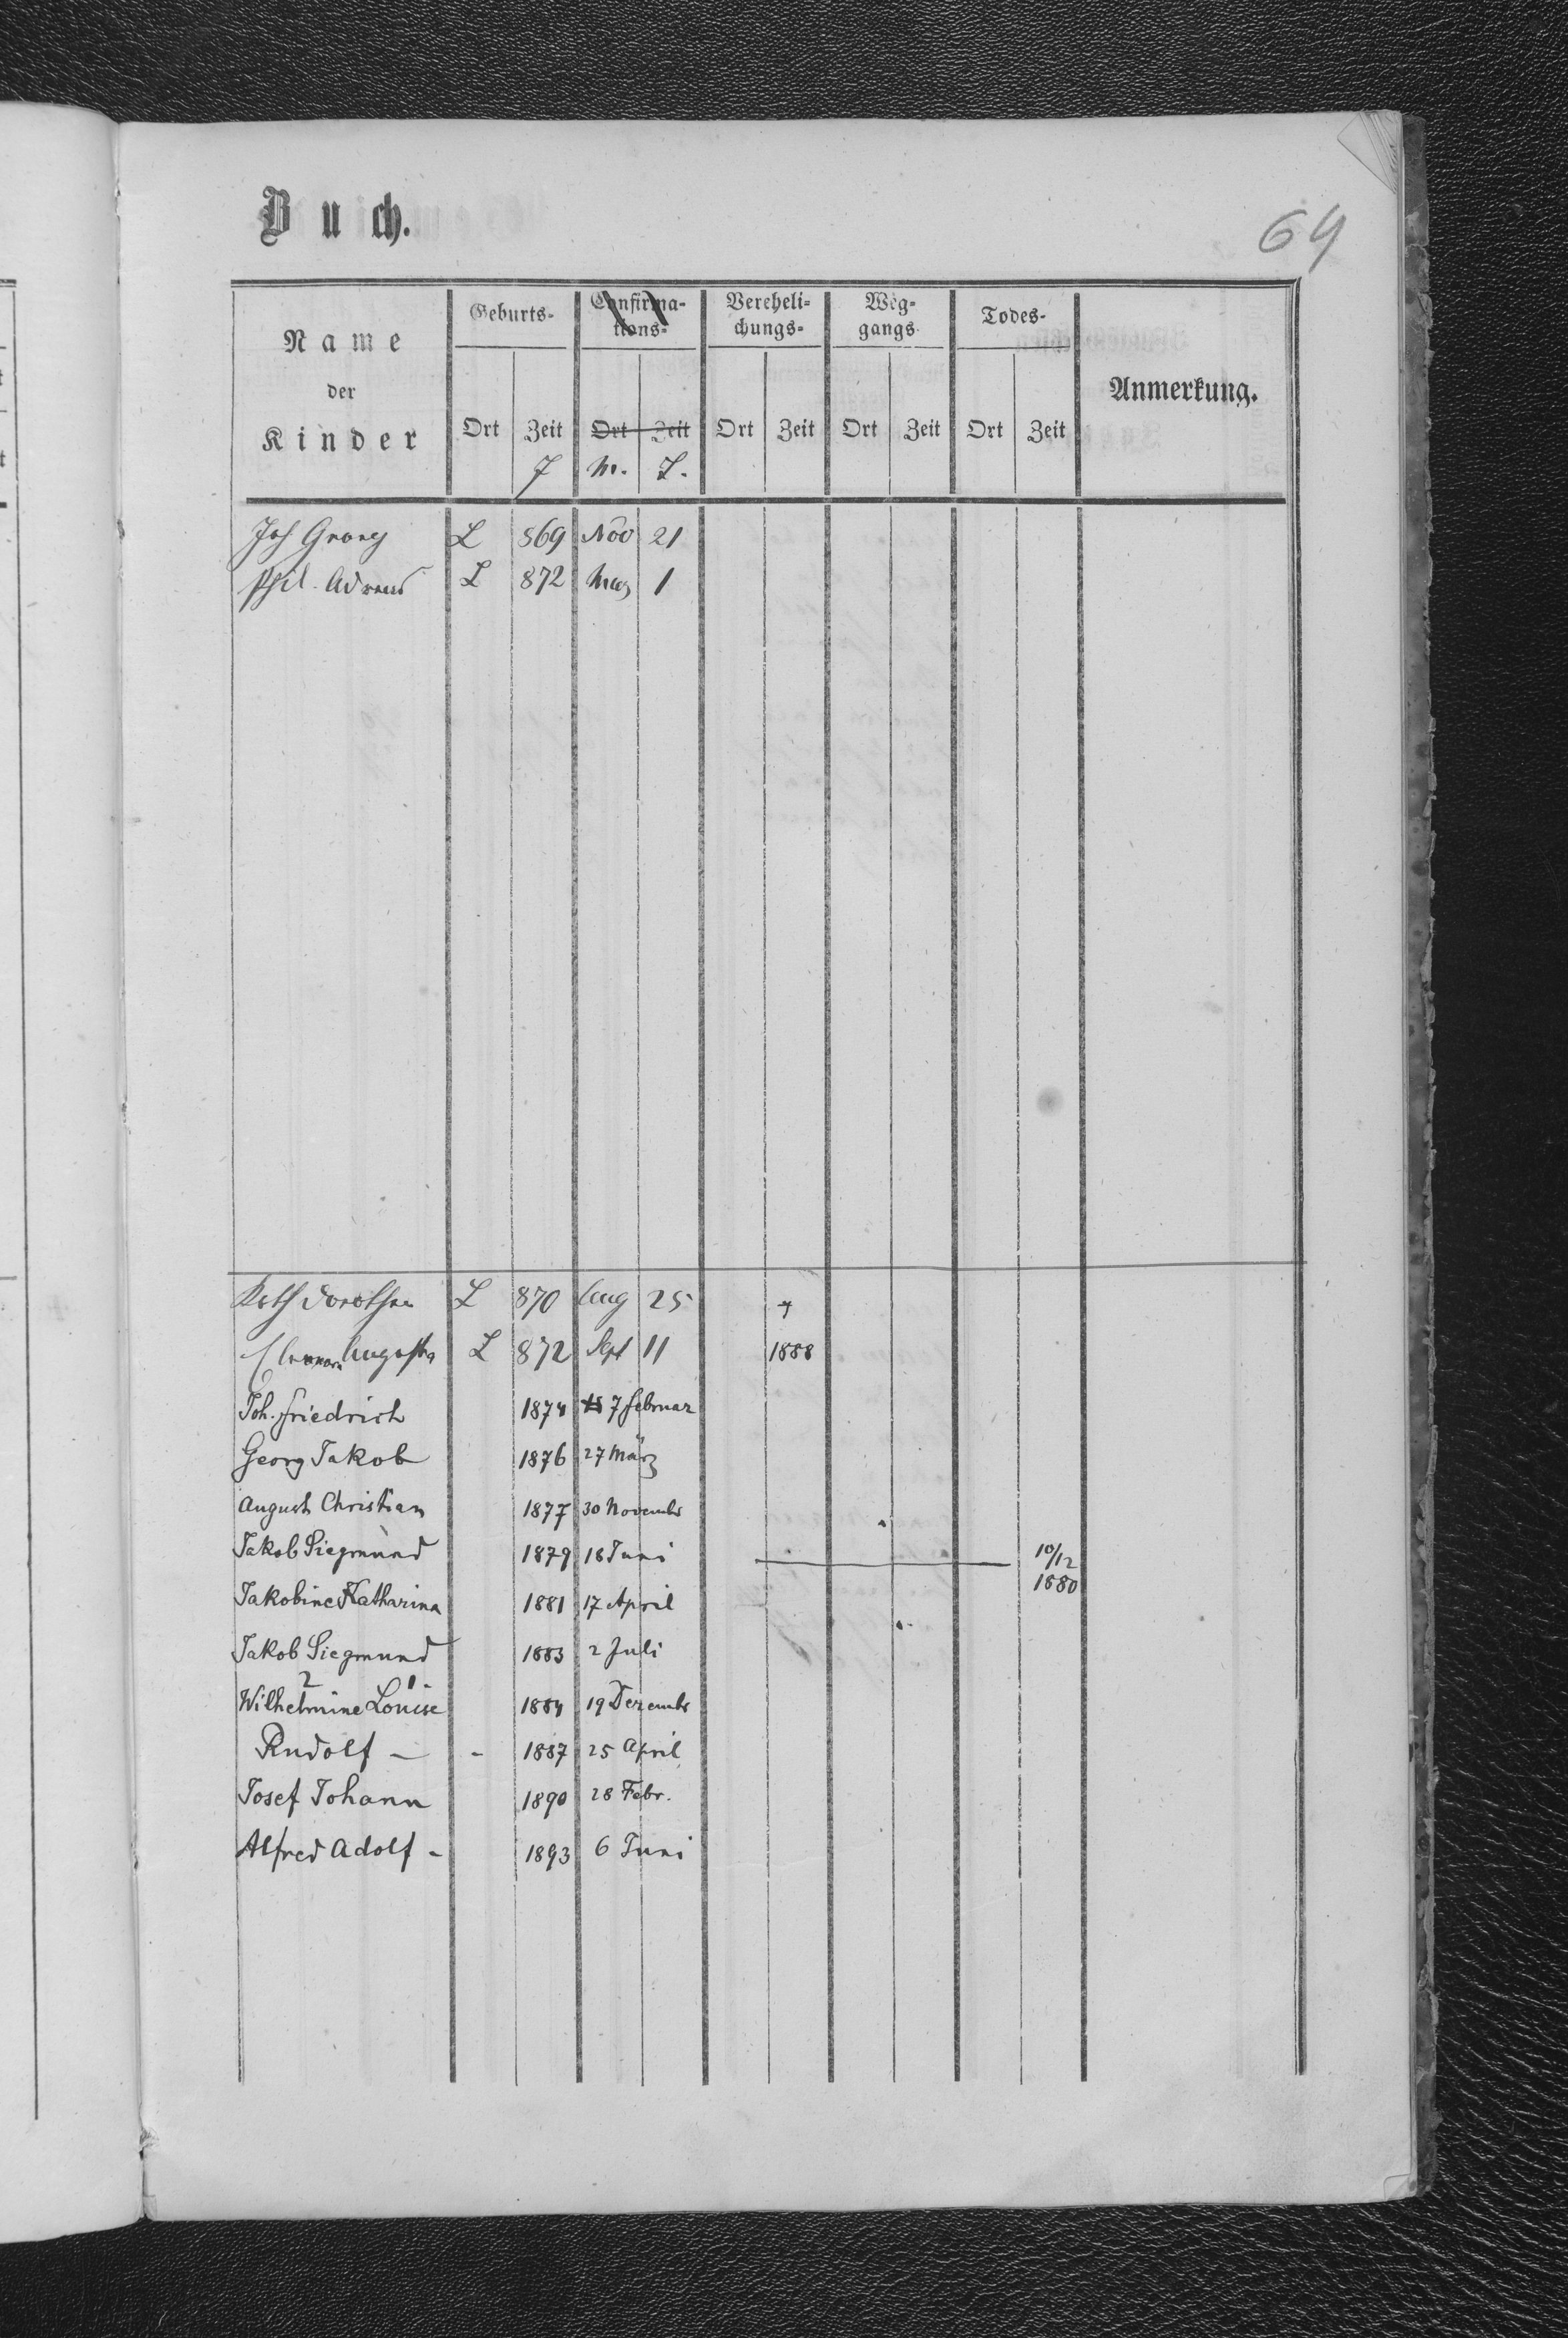 Buch.
64
Name der Kinder
Geburts-
Confirma-tions-
Vereheli-chungs-
Weg-gangs
Todes-
Anmerkung.
Ort Zeit Ort Zeit Ort Zeit Ort Zeit Ort Zeit
J M. T.
Joh Georg L 869 Nov 21
Phil. L 872 May 1
Kath Dorothea L 870 Aug 25
Augusta L 872 Sept 11 1888
Joh. Friedrich 1874 7 Februar
Georg Jakob 1876 27 März
August Christian 1877 30 Novembr
Jakob Siegmund 1879 18 Juni 10/12 1880
Jakobine Katharina 1881 17 April
Jakob Siegmund 1883 2 Juli
2 1
Wilhelmine Louise 1884 19 Dezembr
Rudolf — - 1887 25 April
Josef Johann 1890 28 Febr.
Alfred Adolf - 1893 6 Juni